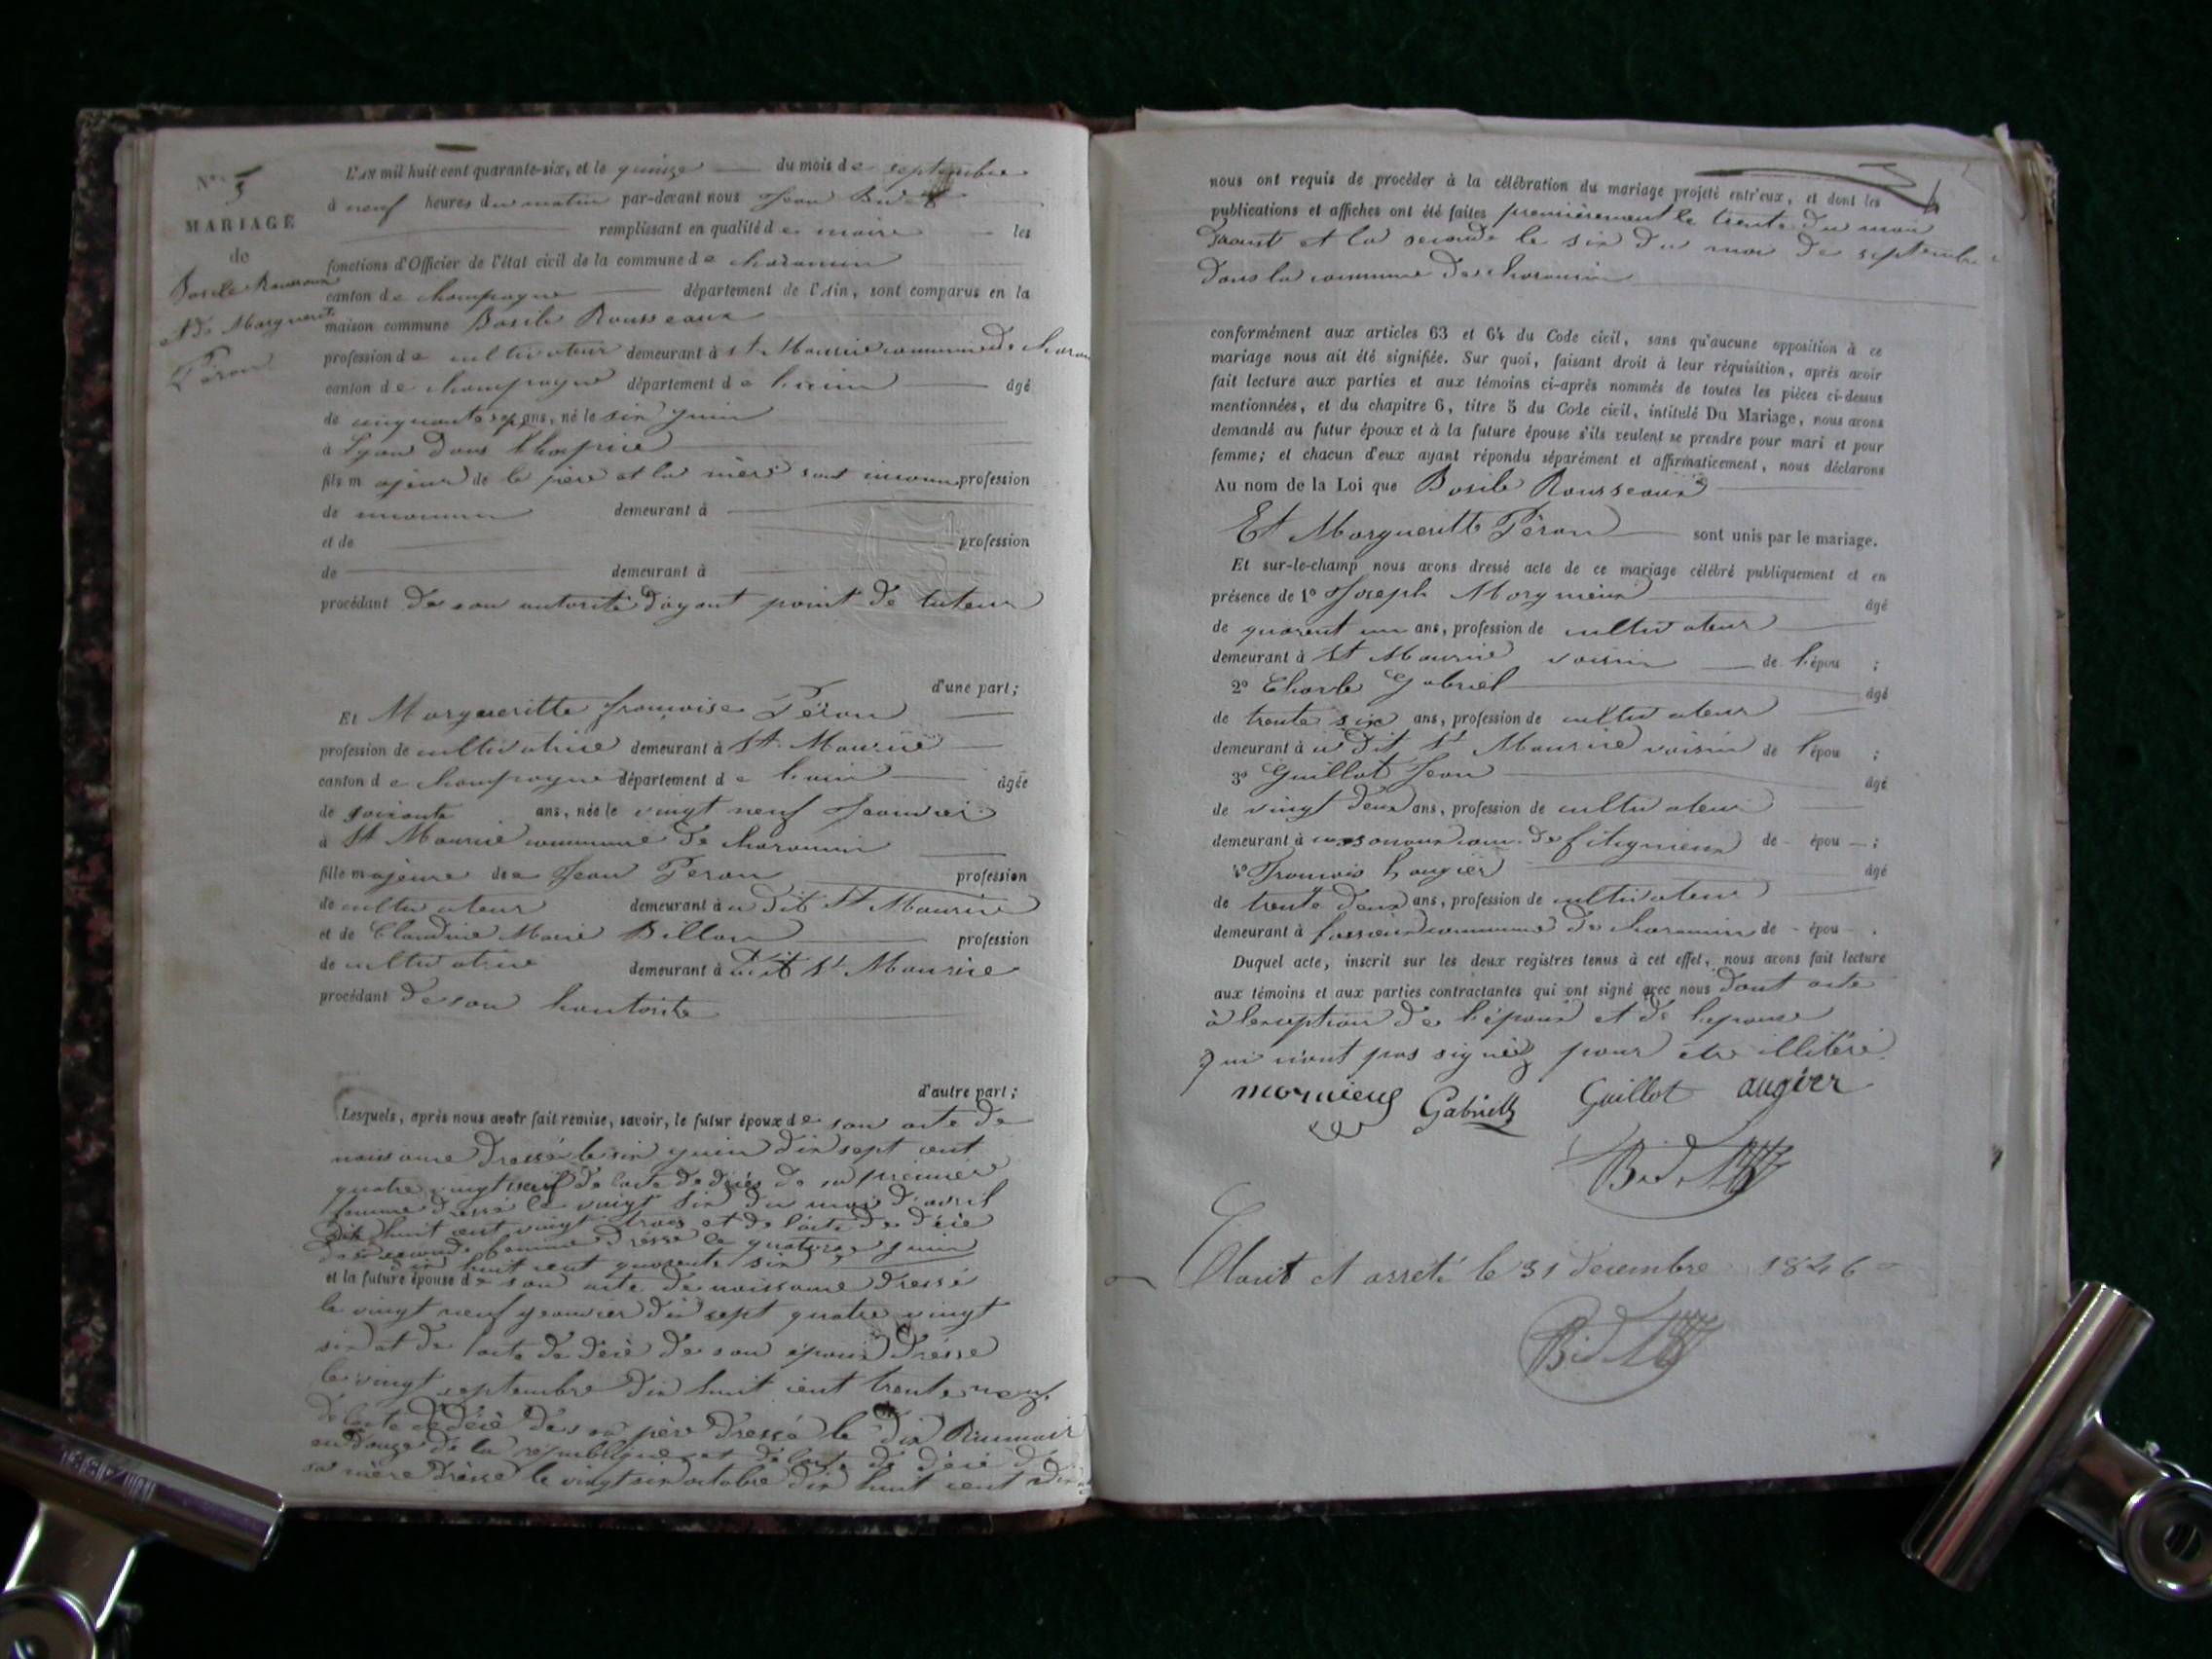 N° 5
MARIAGE
de
Basile Rousseaux
et de Margueritte
Péron
L'AN mil huit cent quarante-six, et le quinze du mois de septembre
à neuf heures du matin par-devant nous Jean
remplissant en qualité de maire les
fonctions d'Officier de l'état civil de la commune de charancin
canton de champagne département de l'Ain, sont comparus en la
maison commune Basile Rousseaux
profession de cultivateur demeurant à St Maurice commune de
canton de champagne département de lain âgé
de cinquante sept ans, né le six juin
à Lyon dans lhospice
fils majeur de le père et la mère sont inconnu profession
de inconnu demeurant à
et de profession
de demeurant à
procédant de son autorité dayant point de tuteur
d'une part;
Et Margueritte françoise Péron
profession de cultivatrice demeurant à St Maurice
canton de champagne département de lain âgée
de soixante ans, née le vingt neuf Jeanvier
à St Maurice commune de charancin
fille majeure de Jean Peron profession
de cultivateur demeurant à u dit St Maurice
et de Claudine Marie Billon profession
de cultivatrice demeurant à u dit St Maurice
procédant de son hautorite
d'autre part;
Lesquels, après nous avoir fait remise, savoir, le futur époux de son acte de
naissance dressé le six juin dix sept cent
quatre vingt neuf de lacte de décès de sa premier
femme dressé le vingt six du mois d'avril
dix huit cent vingt trois et de lacte de décé
de sa seconde femme dressé le quatorze juin
dix huit cent quarente six
et la future épouse de son acte de naissance dressé
le vingt neuf jeanvier dix sept quatre vingt
six et de lacte de décé de son époux dressé
le vingt septembre dix huit cent trente neuf
de lacte de décé de son père dressé le dix Brumair
an douze de la republique et de lacte de décé de
sa mère dréssé le vingt six octobre dix huit cent dix
nous ont requis de procéder à la célébration du mariage projeté entr'eux, et dont les
publications et affiches ont été faites premièrement le trente du mois
daoust et la seconde le six du mois de septembre
dans la commune de charancin
conformément aux articles 63 et 64 du Code civil, sans qu'aucune opposition à ce
mariage nous ait été signifiée. Sur quoi, faisant droit à leur réquisition, après avoir
fait lecture aux parties et aux témoins ci-après nommés de toutes les pièces ci-dessus
mentionnées, et du chapitre 6, titre 5 du Code civil, intitulé Du Mariage, nous avons
demandé au futur époux et à la future épouse s'ils veulent se prendre pour mari et pour
femme; et chacun d'eux ayant répondu séparément et affirmativement, nous déclarons
Au nom de la Loi que Basile Rousseaux
Et Margueritte Péron sont unis par le mariage.
Et sur-le-champ nous avons dressé acte de ce mariage célébré publiquement et en
présence de 1° Joseph Morgnieux âgé
de quarent un ans, profession de cultivateur
demeurant à St Maurice voisin de l'épou ;
2° Charle Gabriel âgé
de trente six ans, profession de cultivateur
demeurant à u dit St Maurice voisin de l'épou ;
3° Guillot Jean âgé
de vingt deux ans, profession de cultivateur
demeurant à com. de fitignieux de - épou - ;
4° François Laugier âgé
de trente deux ans, profession de cultivateur
demeurant à commune de charancin de - épou - .
Duquel acte, inscrit sur les deux registres tenus à cet effet, nous avons fait lecture
aux témoins et aux parties contractantes qui ont signé avec nous dont acte
à lexception de l'époux et de lepouse
qui n'ont pas signéz pour être illitéré.
mornieux Gabriell Guillot augier
Clout et arrété le 31 décembre 1846